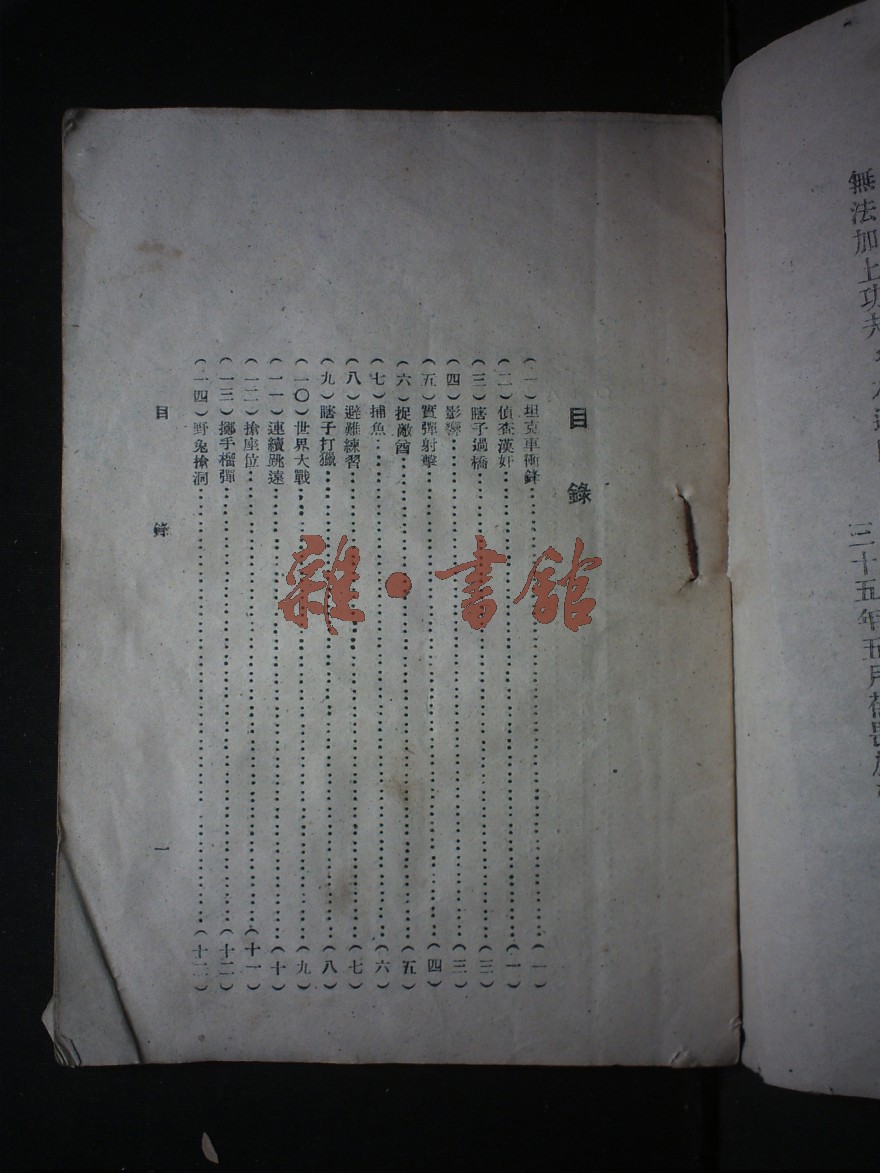 無法加上功
三十五年五月
目錄
（一）坦克車衝鋒（一）
（二）偵查漢奸（一）
（三）瞎子過橋（三）
（四）影響（三）
（五）實彈射擊（四）
（六）捉敵酋（五）
（七）捕魚（六）
（八）避難練習（七）
（九）瞎子打獵（八）
（一〇）世界大戰（九）
（一一）連續跳遠（十）
（一二）搶座位（十一）
（一三）擲手榴彈（十二）
（一四）野兔搶洞（十二）
目錄 一
雜·書館